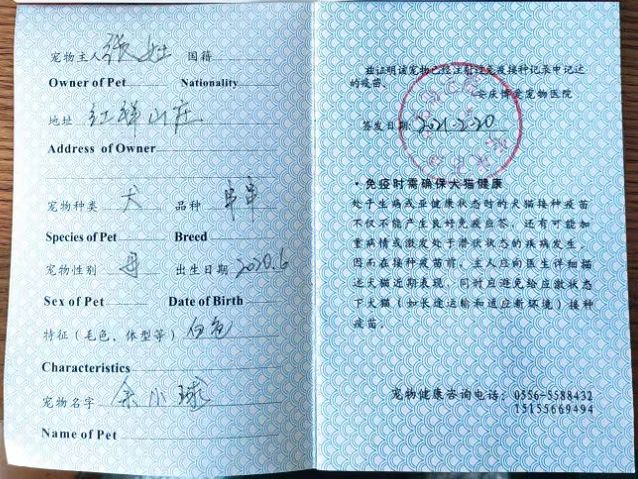 宠物主人 张 国籍
Owner of Pet Nationality
地址 红祥山庄
Address of Owner
宠物种类 犬 品种 串串
Species of Pet Breed
宠物性别 母 出生日期 2020.6
Sex of Pet Date of Birth
特征（毛色、体型等） 白色
Characteristics
宠物名字 余小球
Name of Pet
兹证明该宠物已经注射过免疫接种记录中记述
的疫苗。
安庆博爱宠物医院
签发日期: 2021-2-20
·免疫时需确保犬猫健康
处于生病或亚健康状态时的犬猫接种疫苗
不仅不能产生良好免疫应答，还有可能加
重病情或激发处于潜伏状态的疾病发生。
因而在接种疫苗前，主人应向医生详细描
述犬猫近期表现，同时应避免给应激状态
下犬猫（如长途运输和适应新环境）接种
疫苗。
宠物健康咨询电话：0556-5588432
15155669494